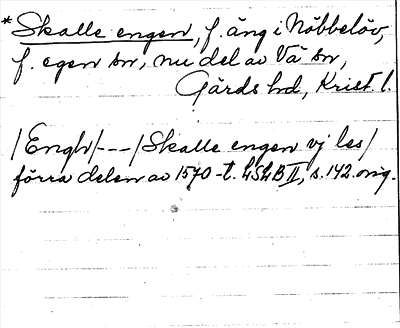 * Skalle engen, f. äng i Nöbbelöv,
f. egen sn, nu del av Vä sn,
Gärds hd, Krist. l.
/Engh/ --- /Skalle engen vj les/
förra delen av 1570-t. LSLB II, s. 142. orig.